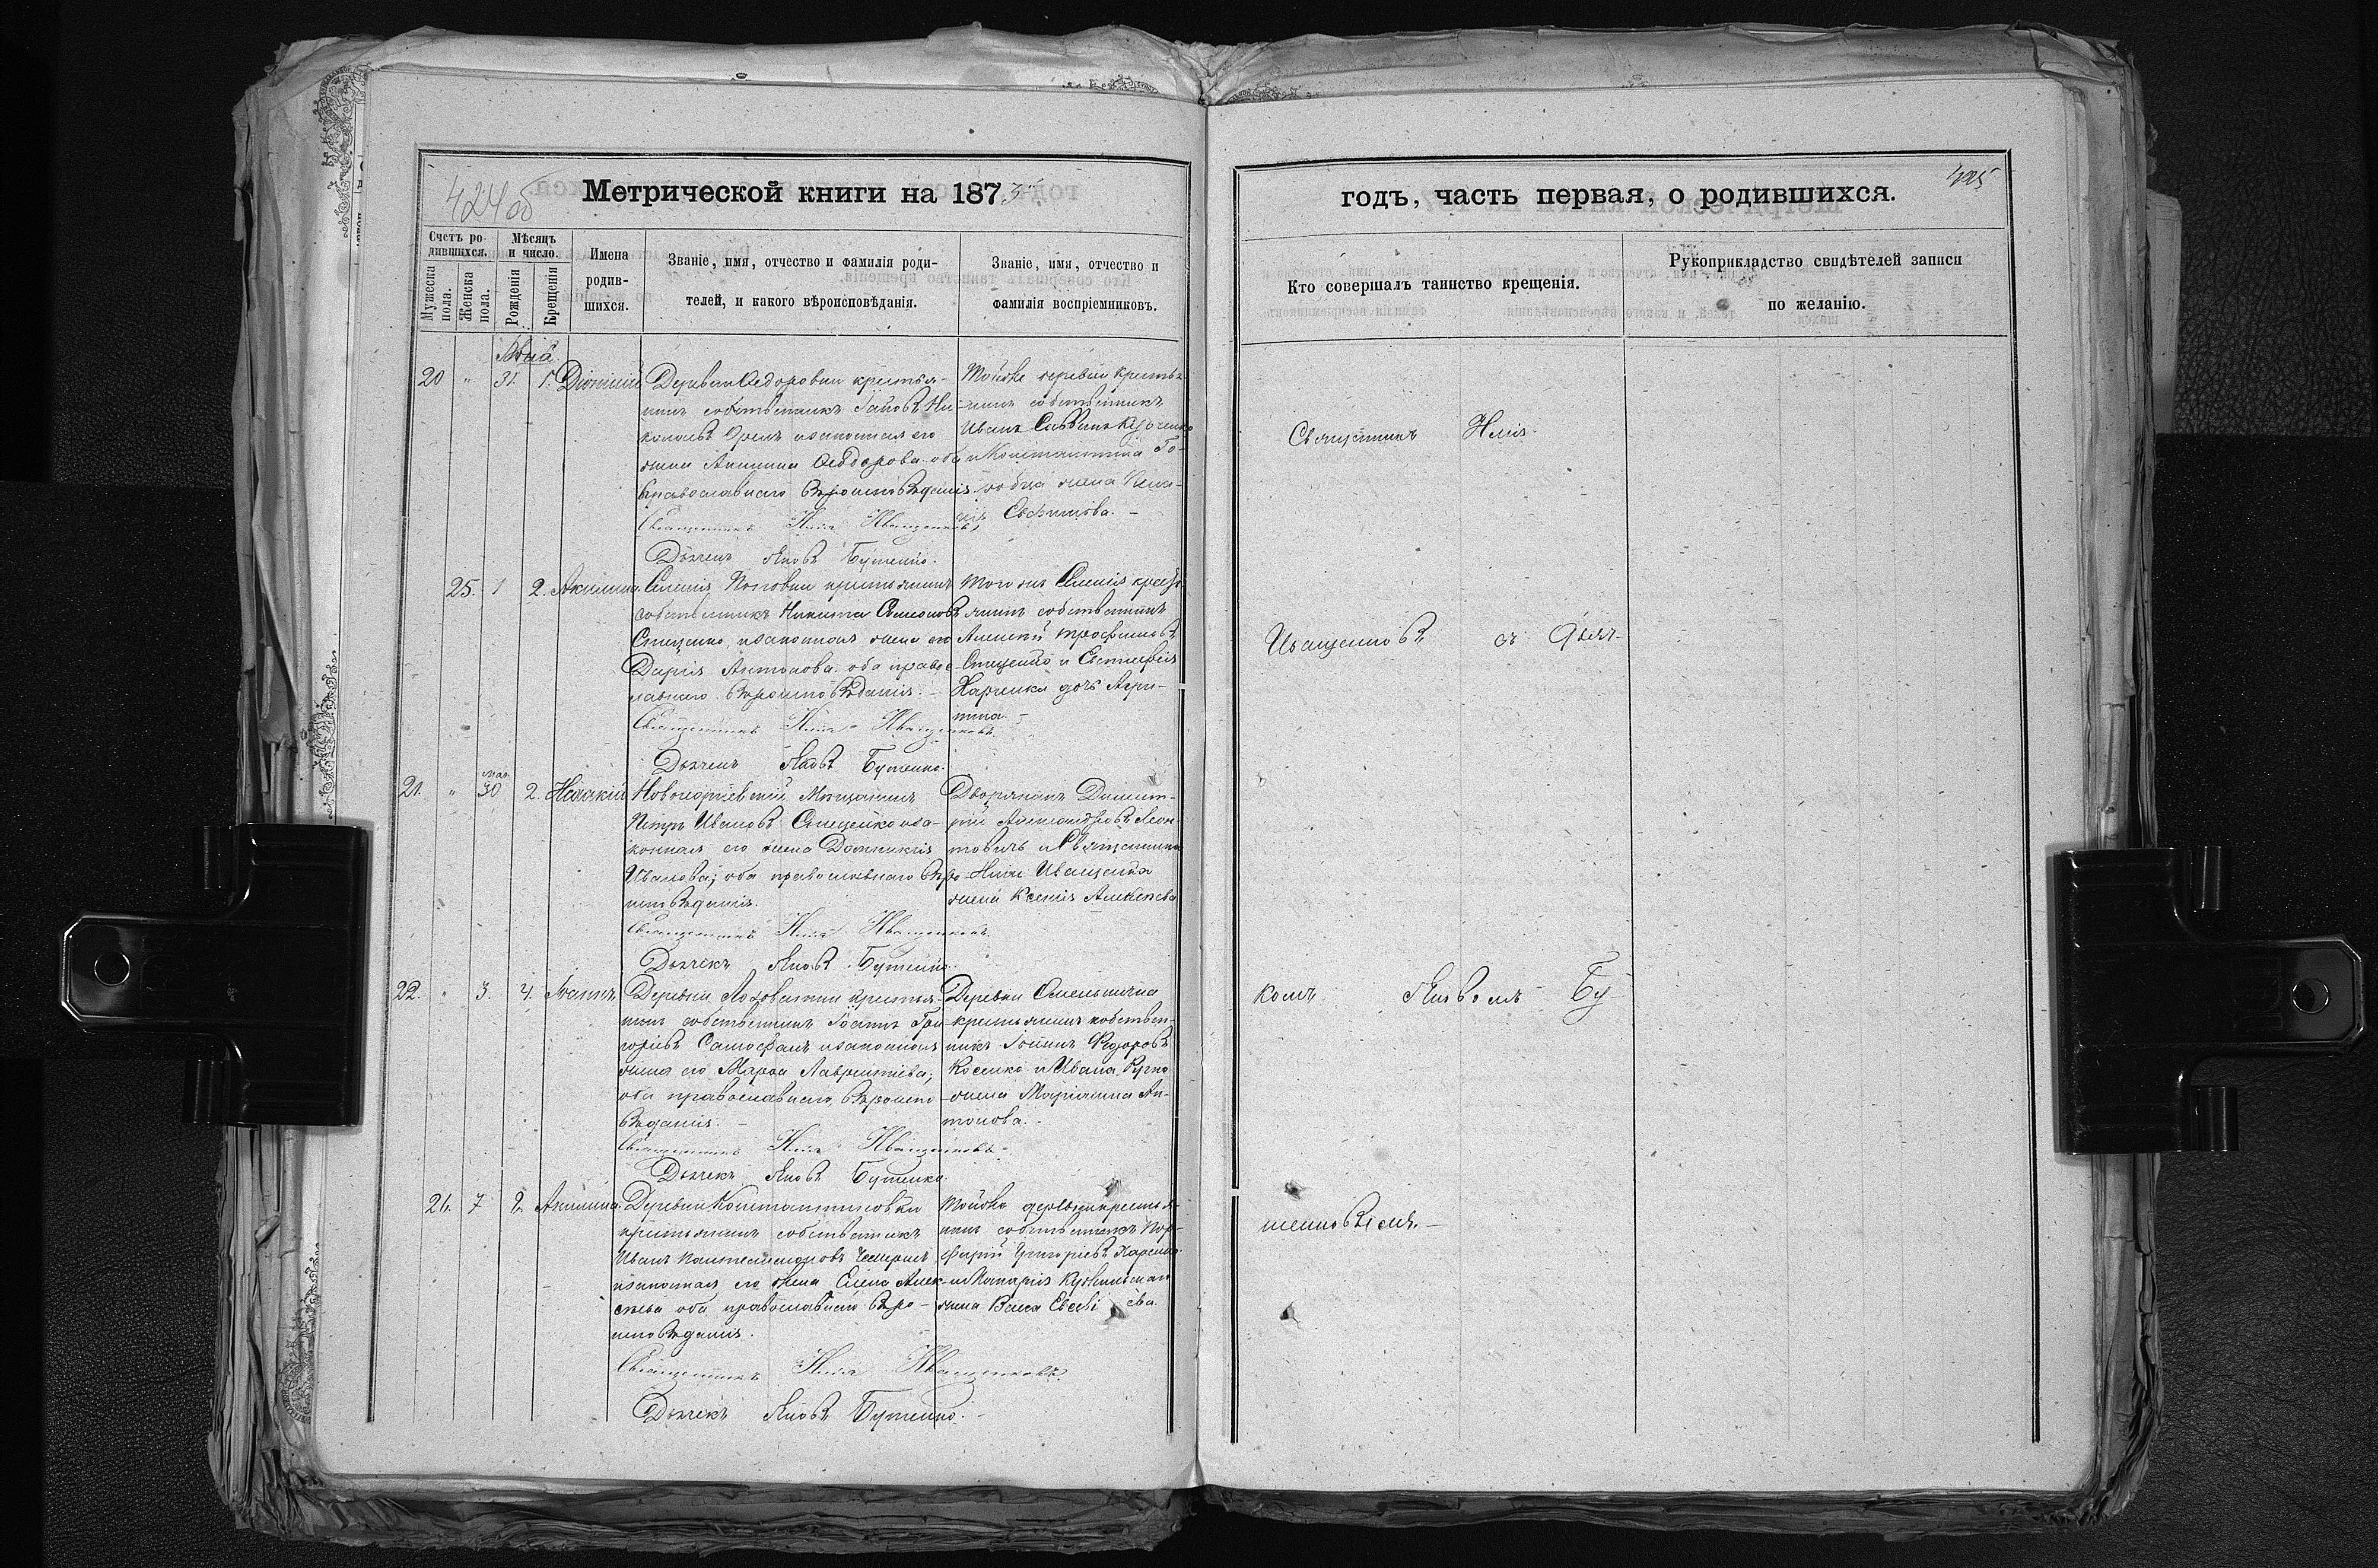 424об
Метрической книги на 1875
Счетъ ро-
дившихся.
Мѣсяцъ
и число.
Мужеска
пола.
Женска
пола.
Рожденія
Крещенія
Имена
родив-
шихся.
Званіе, имя, отчество и фамилія роди-
телей, и какого вѣроисповѣданія.
Званіе, имя, отчество и
фамилія воспріемниковъ.
Маія
20 " 31. 1. Діонисій
Деревни Ѳедоровки крестья-
нинъ собственникъ Іаковъ Ни-
колаевъ и законная его
жена Акилина Ѳеодорова оба
православнаго вѣроисповѣданія
Священникъ Илія Иващенковъ
Дьячекъ Яковъ Бутенко.
Тойже деревни крестья-
нинъ собственникъ
Иванъ
и Константина Го-
жена
Евфимова.
25. 1 2. Акилина.
Селенія крестьянинъ
собственникъ Никита Симеоновъ
Стеценко, и законная жена его
Дарія Антонова оба правос-
лавнаго вѣроисповѣданія.
Священникъ Илія Иващенковъ.
Дьячекъ Яковъ Бутенко.
того же Селенія крестья-
нинъ собственникъ
Алексій Трофимовъ
Стеценко и Евстафія
Харченка дочь Агри-
пина.
21. " мая 30 2. Исаакій
Новогеоргіевскій Мещанинъ
Петръ Ивановъ и за-
конная его жена Домникія
Иванова; оба православнаго вѣро-
исповѣданія.
Священникъ Илія Иващенковъ.
Дьячекъ Яковъ Бутенко.
Дворянинъ Димит-
рій Александровъ Леон-
товичъ и Священника
Иліи Иващенка
жена Ксенія Алексѣева
22. " 3. 4. Іоаннъ.
Деревни крестья-
нинъ собственникъ Іоаннъ Гри-
горіевъ Самофалъ и законная
жена его Марѳа Лаврентіева;
оба православнаго вѣроиспо-
вѣданія.
Священникъ Илія Иващенковъ.
Дьячекъ Яковъ Бутенко.
Деревни Омельничка
крестьянинъ собствен-
никъ Іоаннъ Ѳедоровъ
Косенко и Ивана
жена Маріанна Ан-
тонова.
26. 7 8. Акилина.
Деревни Константиновки
крестьянинъ собственникъ
Иванъ Пантелимоновъ
и законная его жена Елена Алек-
сѣева оба православнаго вѣро-
исповѣданія.
Священникъ Илія Иващенковъ.
Дьячекъ Яковъ Бутенко.
Тойже деревни крестья-
нинъ собственникъ Пор-
фирій Григоріевъ
и Макарія
жена Васса
425
годъ, часть первая, о родившихся.
Кто совершалъ таинство крещенія.
Рукоприкладство свидѣтелей записи
по желанію.
Священникъ Илія
Иващенковъ съ Дьяч-
комъ Яковомъ Бу-
тенковымъ.